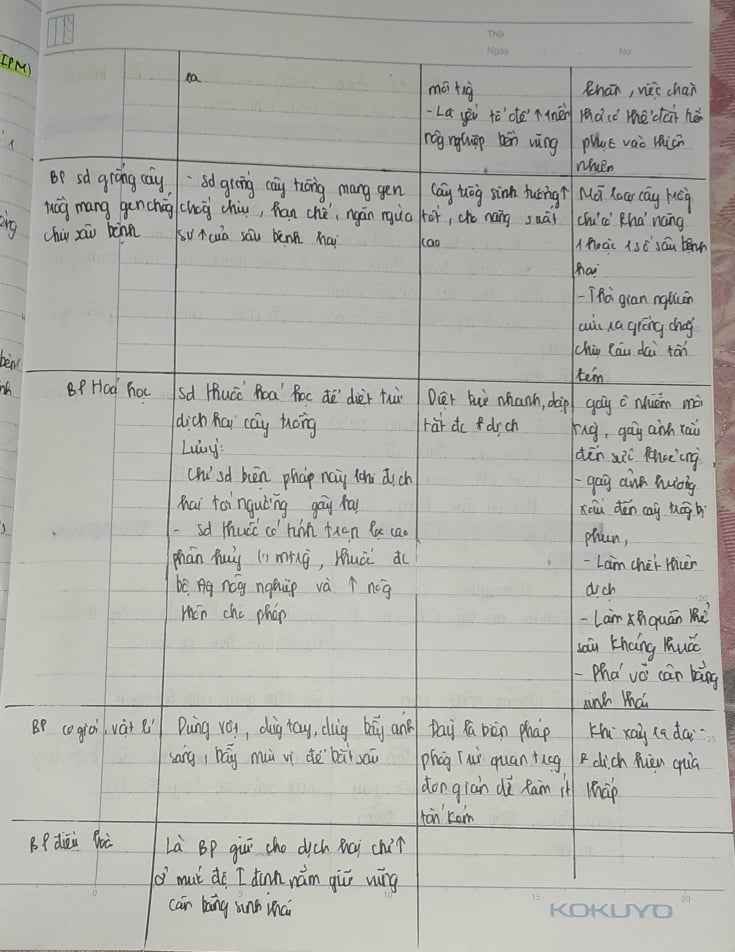 Thứ
Ngày No
IPM)
ra
môi trg
- Là yếu tố để ↑ nền
nôg nghiệp bền vững
khăn, việc chăn
thả có thể
phụ thuộc vào thiên
nhiên
BP sd giống cây
trồg mang gen chốg
chịu sâu bệnh
- sd giống cây trồng mang gen
chốg chịu, hạn chế, ngăn ngừa
sự ↑ của sâu bệnh hại
Cây trồg sinh trưởng ↑
tốt, cho năng suất
cao
Mỗi loại cây trồg
chỉ có khả năng
1 hoặc 1 số sâu bệnh
hại
- Thời gian nghiên
cứu ra giống chốg
chịu lâu dài tốn
kém
BP Hoá học
Sd thuốc hoá học để diệt trừ
dịch hại cây trồng
Lưu ý:
Chỉ sd biện pháp này khi dịch
hại tới ngưỡng gây hại
- sd thuốc có tính chọn lọc cao
phân huỷ trg mtrg, thuốc đc
bộ nôg nghiệp và ↑ nôg
thôn cho phép
Diệt trừ nhanh, dập
tắt đc ổ dịch
gây ô nhiễm môi
trg, gây ảnh xấu
đến sức khoẻ
- gây ảnh hưởng
xấu đến cây trồg bị
phun,
- Làm chết thiên
địch
- Làm xh quần thể
sâu kháng thuốc
- Phá vỡ cân bằng
sinh thái
BP cơ giới, vật lí
Dùng vợt, dùg tay, dùg bẫy ánh
sáng, bẫy mùi vị để bắt sâu
Đây là biện pháp
phòg trừ quan trọg
đơn giản dễ làm ít
tốn kém
Khi xảy ra đại
dịch hiệu quả
thấp
BP điều hoà
Là BP giữ cho dịch hại chỉ ↑
ở mức độ I định nằm giữ vững
cân bằng sinh thái
KOKUYO